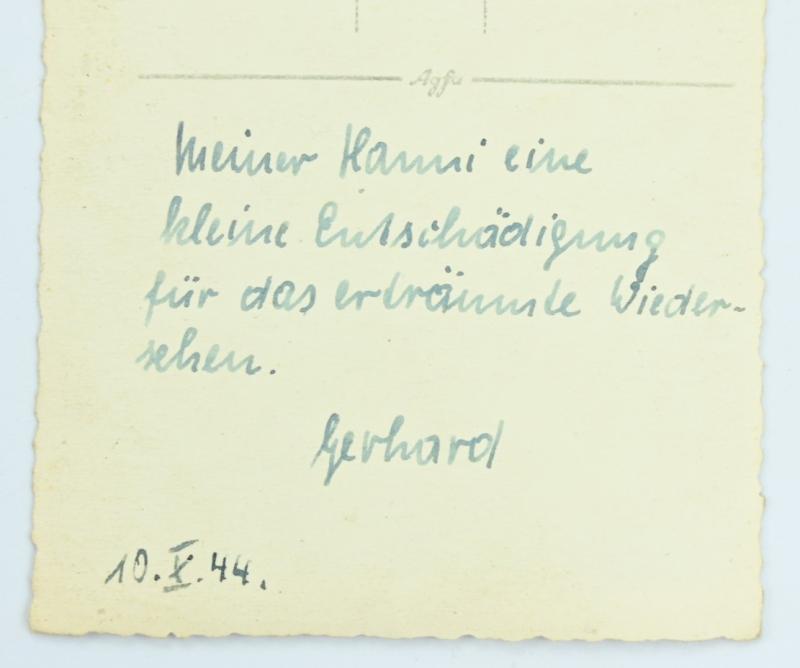 Agfa
Meiner Hanni eine
kleine Entschädigung
für das erträumte Wieder-
sehen.
Gerhard
10.X.44.